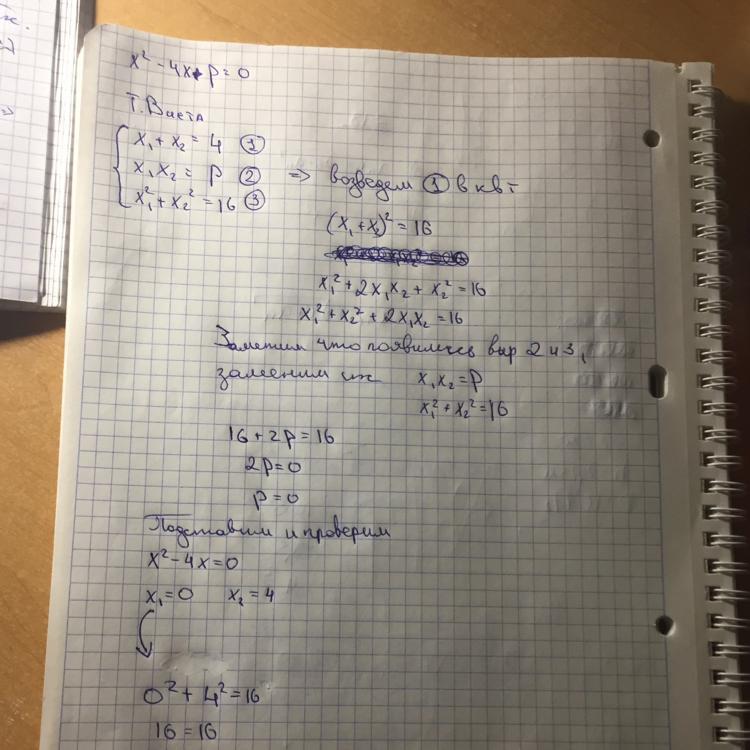 x² - 4x + p = 0
Т. Виета
x₁ + x₂ = 4 ①
x₁x₂ = p ② => возведем ① в квт
x₁² + x₂² = 16 ③
(x₁ + x₂)² = 16
x₁² + 2x₁x₂ + x₂² = 16
x₁² + x₂² + 2x₁x₂ = 16
Заметим что появились выр 2 и 3,
заменим их x₁x₂ = p
x₁² + x₂² = 16
16 + 2p = 16
2p = 0
p = 0
Подставим и проверим
x² - 4x = 0
x₁ = 0 x₂ = 4
0² + 4² = 16
16 = 16